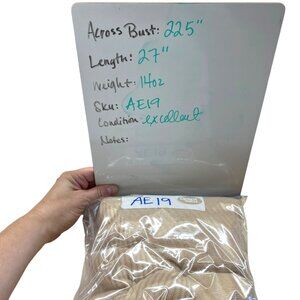 Across Bust: 22.5"
Length: 27"
Weight: 14oz
Sku: AE19
Condition: excellent
Notes:
AE19